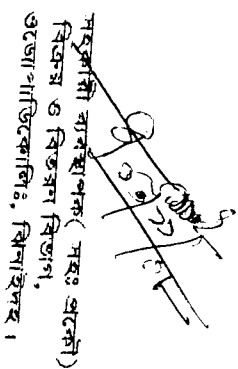 সহকারী ব্যবস্থাপক( সহঃ প্রকৌঃ)
বিক্রয় ও বিতরণ বিভাগ,
ওজোপাডিকোলিঃ, ঝিনাইদহ ।